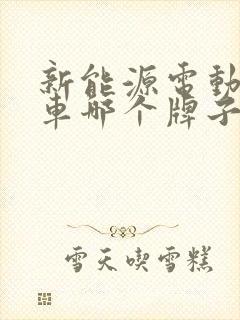 新能源電動
車哪个牌子
雪天喫雪糕